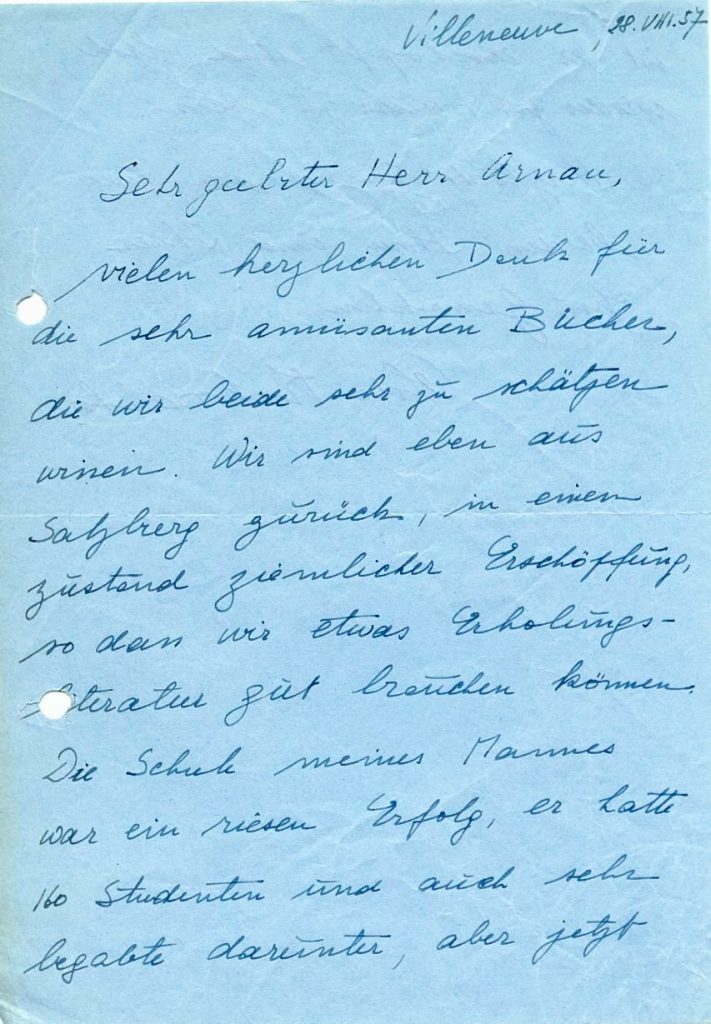 Villeneuve, 28.VIII.57
Sehr geehrter Herr Arnau,
vielen herzlichen Dank für
die sehr amüsanten Bücher,
die wir beide sehr zu schätzen
wissen. Wir sind eben aus
Salzburg zurück, in einem
Zustand ziemlicher Erschöpfung,
so dass wir etwas Erholungs-
literatur gut brauchen können.
Die Schule meines Mannes
war ein riesen Erfolg, er hatte
160 Studenten und auch sehr
begabte darunter, aber jetzt